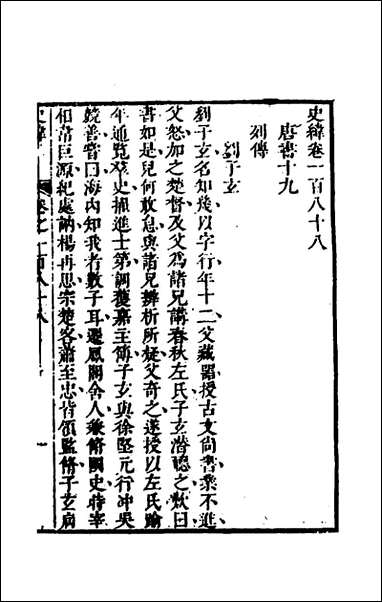 史緯卷一百八十八
唐書十九
列傳
劉子玄
劉子玄名知幾以字行年十二父藏器授古文尚書業不進
父怒加之楚督及父爲諸兄講春秋左氏子玄潛聽之歎曰
書如是兒何敢怠與諸兄辨析所疑父奇之遂授以左氏踰
年通覽羣史擢進士第調獲嘉主簿子玄與徐堅元行冲吳
兢善嘗曰海內知我者數子耳遷鳳閣舍人兼脩國史時宰
相韋巨源紀處訥楊再思宗楚客蕭至忠皆領監脩子玄病
史緯
卷之一百八十八
一